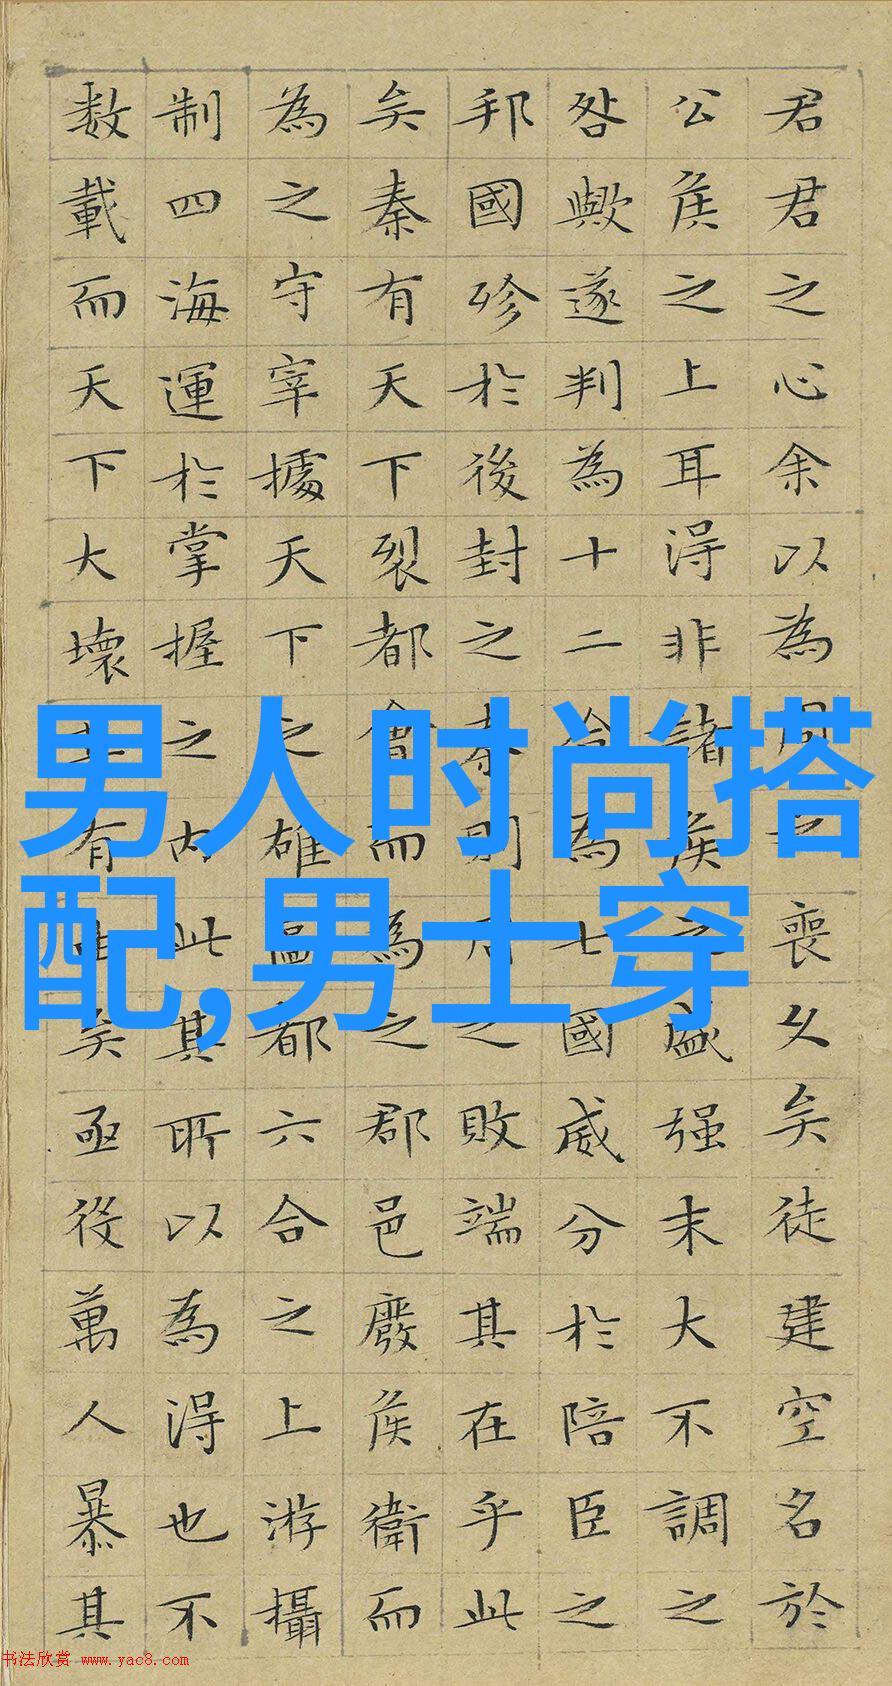 君君之心余以為周之喪乆矣徒建空名於
公侯之上耳得非諸侯之盛强末大不調之
咎歟遂判為十二合為七國威分於陪臣之
邦國殄於後封之秦則周之敗端其在乎此
矣秦有天下裂都會而為之郡邑廢侯衛而
為之守宰據天下之雄圖都六合之上游攝
制四海運於掌握之内此其所以為得也不
数載而天下大壞其有由矣亟役萬人暴其
男人时尚搭
配,男士穿
书法欣赏 www.yac8.com